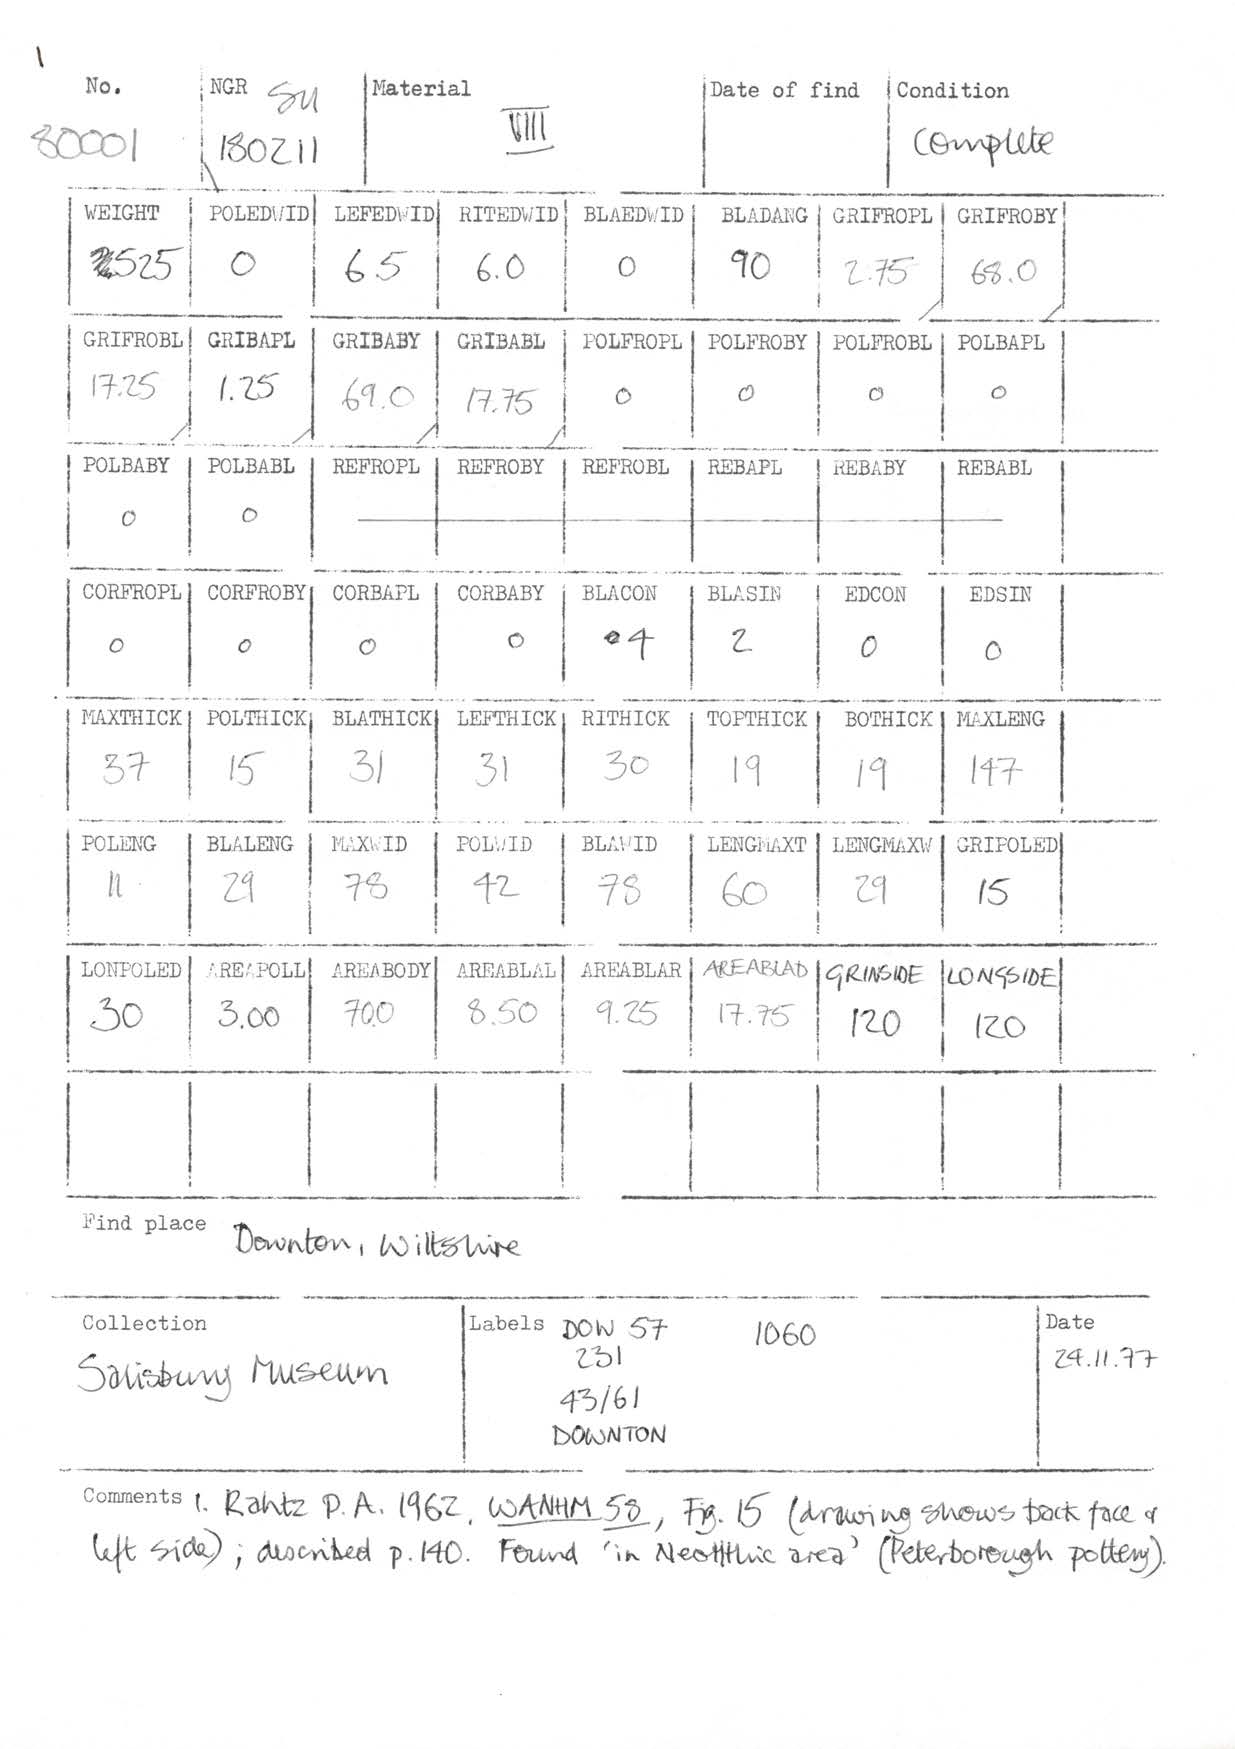 1
No. NGR SU Material Date of find Condition
80001 180211 VIII complete
WEIGHT POLEDWID LEFEDWID RITEDWID BLAEDWID BLADANG GRIFROPL GRIFROBY
525 0 6.5 6.0 0 90 2.75 68.0
GRIFROBL GRIBAPL GRIBABY GRIBABL POLFROPL POLFROBY POLFROBL POLBAPL
17.25 1.25 69.0 17.75 0 0 0 0
POLBABY POLBABL REFROPL REFROBY REFROBL REBAPL REBABY REBABL
0 0
CORFROPL CORFROBY CORBAPL CORBABY BLACON BLASIN EDCON EDSIN
0 0 0 0 4 2 0 0
MAXTHICK POLTHICK BLATHICK LEFTHICK RITHICK TOPTHICK BOTHICK MAXLENG
37 15 31 31 30 19 19 147
POLENG BLALENG MAXWID POLWID BLAWID LENGMAXT LENGMAXW GRIPOLED
11 29 78 42 78 60 29 15
LONPOLED AREAPOLL AREABODY AREABLAL AREABLAR AREABLAD GRINSIDE LONGSIDE
30 3.00 70.0 8.50 9.25 17.75 120 120
Find place Downton, Wiltshire
Collection Labels DOW 57 1060 Date
Salisbury Museum 231 29.11.77
43/61
DOWNTON
Comments 1. Rahtz P.A. 1962, WANHM 58, Fig. 15 (drawing shows back face &
left side); described p.140. Found 'in Neolithic area' (Peterborough pottery).